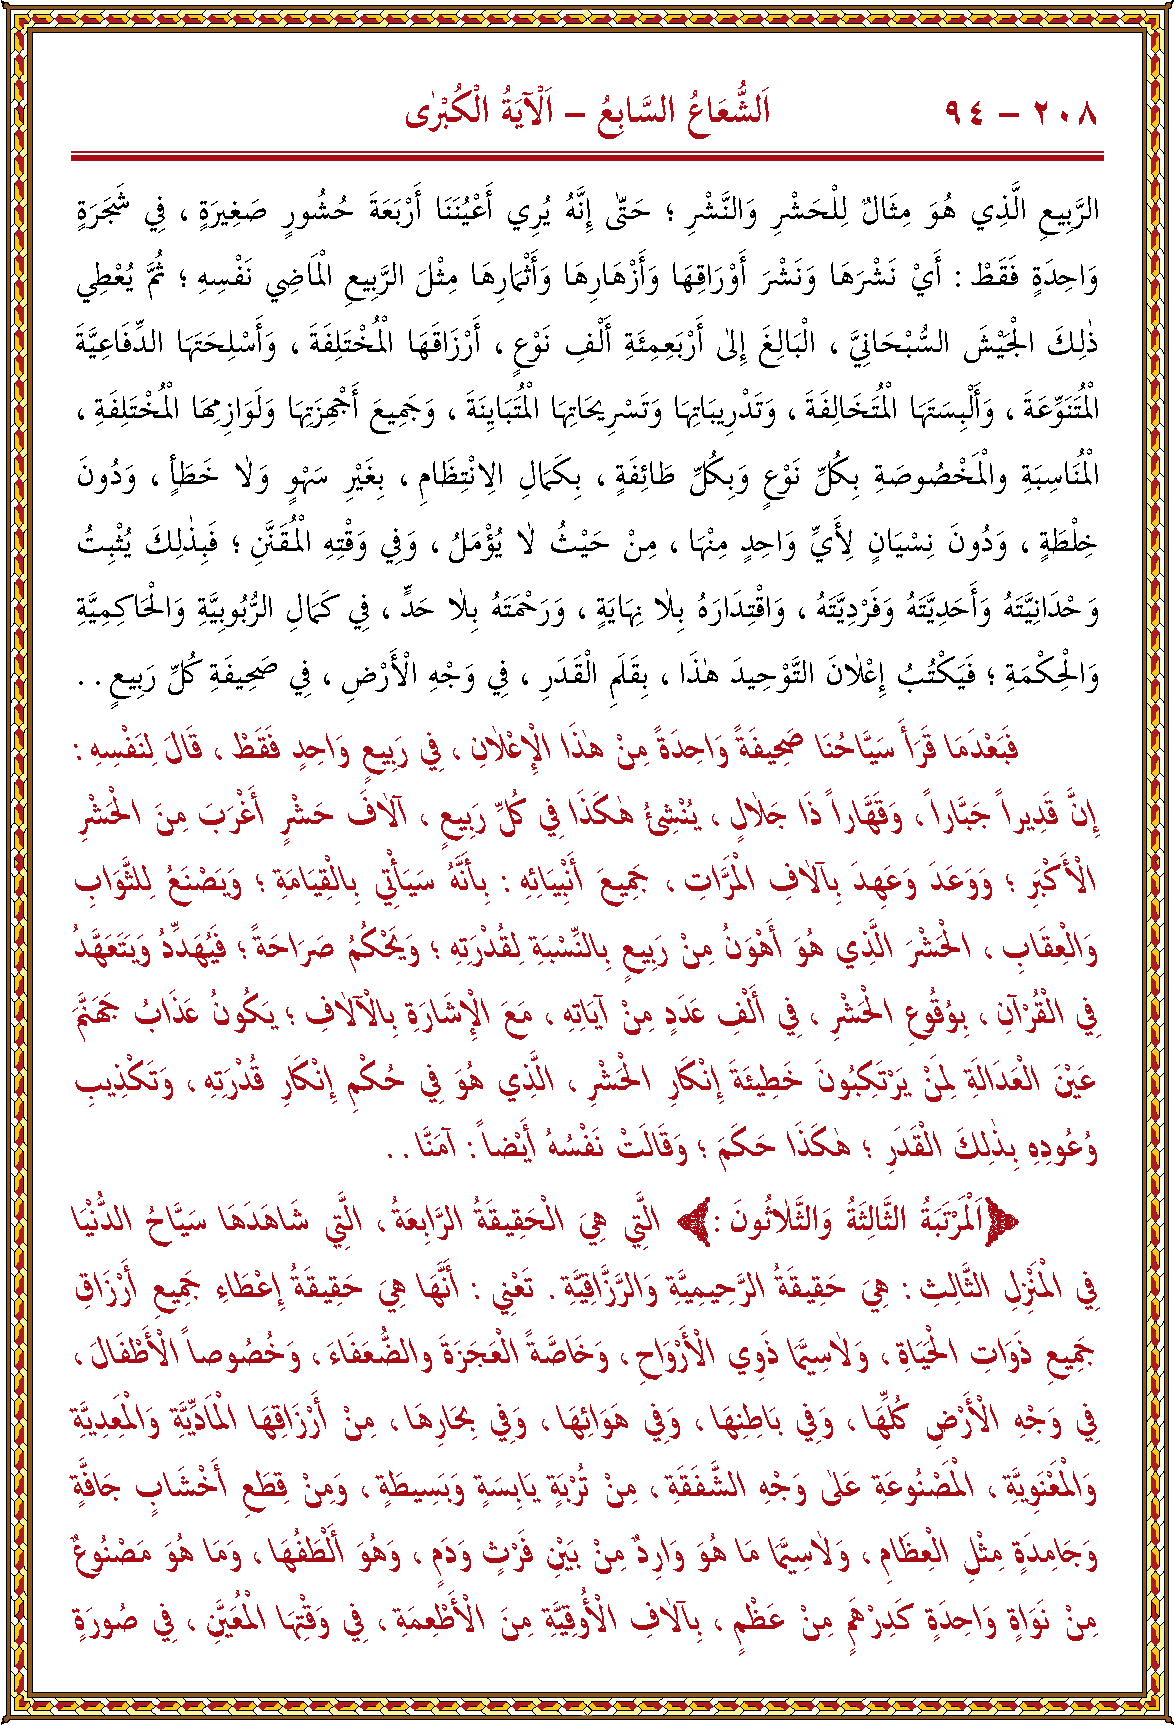 ٢٠٨ – ٩٤ اَلشُّعَاعُ السَّابِعُ – اَلْاٰيَةُ الْكُبْرٰى
الرَّبِيعِ الَّذِي هُوَ مِثَالٌ لِلْحَشْرِ وَالنَّشْرِ ؛ حَتّٰى إِنَّهُ يُرِي أَعْيُنَنَا أَرْبَعَةَ حُشُورٍ صَغِيرَةٍ ، فِي شَجَرَةٍ
وَاحِدَةٍ فَقَطْ : أَيْ نَشْرَهَا وَنَشْرَ أَوْرَاقِهَا وَأَزْهَارِهَا وَأَثْمَارِهَا مِثْلَ الرَّبِيعِ الْمَاضِي نَفْسِهِ ؛ ثُمَّ يُعْطِي
ذٰلِكَ الْجَيْشَ السُّبْحَانِيَّ ، الْبَالِغَ إِلٰى أَرْبَعِمِئَةِ أَلْفِ نَوْعٍ ، أَرْزَاقَهَا الْمُخْتَلِفَةَ ، وَأَسْلِحَتَهَا الدِّفَاعِيَّةَ
الْمُتَنَوِّعَةَ ، وَأَلْبِسَتَهَا الْمُتَخَالِفَةَ ، وَتَدْرِيبَاتِهَا وَتَسْرِيحَاتِهَا الْمُتَبَايِنَةَ ، وَجَمِيعَ أَجْهِزَتِهَا وَلَوَازِمِهَا الْمُخْتَلِفَةِ ،
الْمُنَاسِبَةِ وَالْمَخْصُوصَةِ بِكُلِّ نَوْعٍ وَبِكُلِّ طَائِفَةٍ ، بِكَمَالِ الِانْتِظَامِ ، بِغَيْرِ سَهْوٍ وَلَا خَطَأٍ ، وَدُونَ
خِلْطَةٍ ، وَدُونَ نِسْيَانٍ لِأَيِّ وَاحِدٍ مِنْهَا ، مِنْ حَيْثُ لَا يُؤْمَلُ ، وَفِي وَقْتِهِ الْمُقَنَّنِ ؛ فَبِذٰلِكَ يُثْبِتُ
وَحْدَانِيَّتَهُ وَأَحَدِيَّتَهُ وَفَرْدِيَّتَهُ ، وَاقْتِدَارَهُ بِلَا نِهَايَةٍ ، وَرَحْمَتَهُ بِلَا حَدٍّ ، فِي كَمَالِ الرُّبُوبِيَّةِ وَالْحَاكِمِيَّةِ
وَالْحِكْمَةِ ؛ فَيَكْتُبُ إِعْلَانَ التَّوْحِيدِ هٰذَا ، بِقَلَمِ الْقَدَرِ ، فِي وَجْهِ الْأَرْضِ ، فِي صَحِيفَةِ كُلِّ رَبِيعٍ . .
فَبَعْدَمَا قَرَأَ سَيَّاحُنَا صَحِيفَةً وَاحِدَةً مِنْ هٰذَا الْإِعْلَانِ ، فِي رَبِيعٍ وَاحِدٍ فَقَطْ ، قَالَ لِنَفْسِهِ :
إِنَّ قَدِيراً جَبَّاراً ، وَقَهَّاراً ذَا جَلَالٍ ، يُنْشِئُ هٰكَذَا فِي كُلِّ رَبِيعٍ ، آلَافَ حَشْرٍ أَغْرَبَ مِنَ الْحَشْرِ
الْأَكْبَرِ ؛ وَوَعَدَ وَعَهِدَ بِآلَافِ الْمَرَّاتِ ، جَمِيعَ أَنْبِيَائِهِ : بِأَنَّهُ سَيَأْتِي بِالْقِيَامَةِ ؛ وَيَصْنَعُ لِلثَّوَابِ
وَالْعِقَابِ ، الْحَشْرَ الَّذِي هُوَ أَهْوَنُ مِنْ رَبِيعٍ بِالنِّسْبَةِ لِقُدْرَتِهِ ؛ وَيَحْكُمُ صَرَاحَةً ؛ فَيُهَدِّدُ وَيَتَعَهَّدُ
فِي الْقُرْآنِ ، بِوُقُوعِ الْحَشْرِ ، فِي أَلْفِ عَدَدٍ مِنْ آيَاتِهِ ، مَعَ الْإِشَارَةِ بِالْآلَافِ ؛ يَكُونُ عَذَابُ جَهَنَّمَ
عَيْنَ الْعَدَالَةِ لِمَنْ يَرْتَكِبُونَ خَطِيئَةَ إِنْكَارِ الْحَشْرِ ، الَّذِي هُوَ فِي حُكْمِ إِنْكَارِ قُدْرَتِهِ ، وَتَكْذِيبِ
وُعُودِهِ بِذٰلِكَ الْقَدَرِ ؛ هٰكَذَا حَكَمَ ؛ وَقَالَتْ نَفْسُهُ أَيْضاً : آمَنَّا . .
﴿اَلْمَرْتَبَةُ الثَّالِثَةُ وَالثَّلَاثُونَ :﴾ الَّتِي هِيَ الْحَقِيقَةُ الرَّابِعَةُ ، الَّتِي شَاهَدَهَا سَيَّاحُ الدُّنْيَا
فِي الْمَنْزِلِ الثَّالِثِ : هِيَ حَقِيقَةُ الرَّحِيمِيَّةِ وَالرَّزَّاقِيَّةِ . تَعْنِي : أَنَّهَا هِيَ حَقِيقَةُ إِعْطَاءِ جَمِيعِ أَرْزَاقِ
جَمِيعِ ذَوَاتِ الْحَيَاةِ ، وَلَاسِيَّمَا ذَوِي الْأَرْوَاحِ ، وَخَاصَّةً الْعَجَزَةَ وَالضُّعَفَاءَ ، وَخُصُوصاً الْأَطْفَالَ ،
فِي وَجْهِ الْأَرْضِ كُلِّهَا ، وَفِي بَاطِنِهَا ، وَفِي هَوَائِهَا ، وَفِي بِحَارِهَا ، مِنْ أَرْزَاقِهَا الْمَادِّيَّةِ وَالْمِعَدِيَّةِ
وَالْمَعْنَوِيَّةِ ، الْمَصْنُوعَةِ عَلٰى وَجْهِ الشَّفَقَةِ ، مِنْ تُرْبَةٍ يَابِسَةٍ وَبَسِيطَةٍ ، وَمِنْ قِطَعِ أَخْشَابٍ جَافَّةٍ
وَجَامِدَةٍ مِثْلِ الْعِظَامِ ، وَلَاسِيَّمَا مَا هُوَ وَارِدٌ مِنْ بَيْنِ فَرْثٍ وَدَمٍ ، وَهُوَ أَلْطَفُهَا ، وَمَا هُوَ مَصْنُوعٌ
مِنْ نَوَاةٍ وَاحِدَةٍ كَدِرْهَمِ مِنْ عَظْمٍ ، بِآلَافِ الْأُوقِيَّةِ مِنَ الْأَطْعِمَةِ ، فِي وَقْتِهَا الْمُعَيَّنِ ، فِي صُورَةٍ